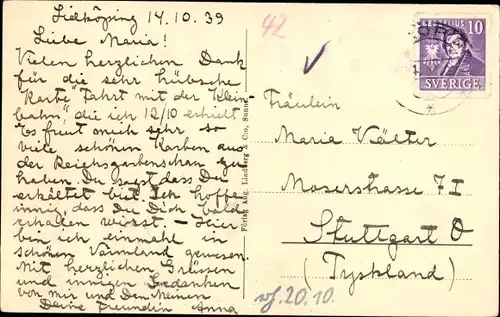 Lidköping 14.10.39
Liebe Maria!
Vielen herzlichen Dank
für die sehr hübsche
Karte "Fahrt mit der Klein-
bahn", die ich 12/10 erhielt
Es freut mich sehr so
viele schönen Karten aus
der Reichsgartenschau zu
haben. Du sagst dass Du
erkältet bist. Ich hoffe
innig, dass Du Dich bald
erhalten wirst. - Hier
bin ich einmahl in
schönen Värmland gewesen.
Mit herzlichen Grüssen
und innigen Gedanken
von mir und Den Meinen
Deine Freundin Anna
Förlag Aug. Lindberg & Co., Sunne
42
BERZELIUS 10
SVERIGE
Fräulein
Maria Välter
Moserstrasse 7 I
Stuttgart O
(Tyskland)
20.10.